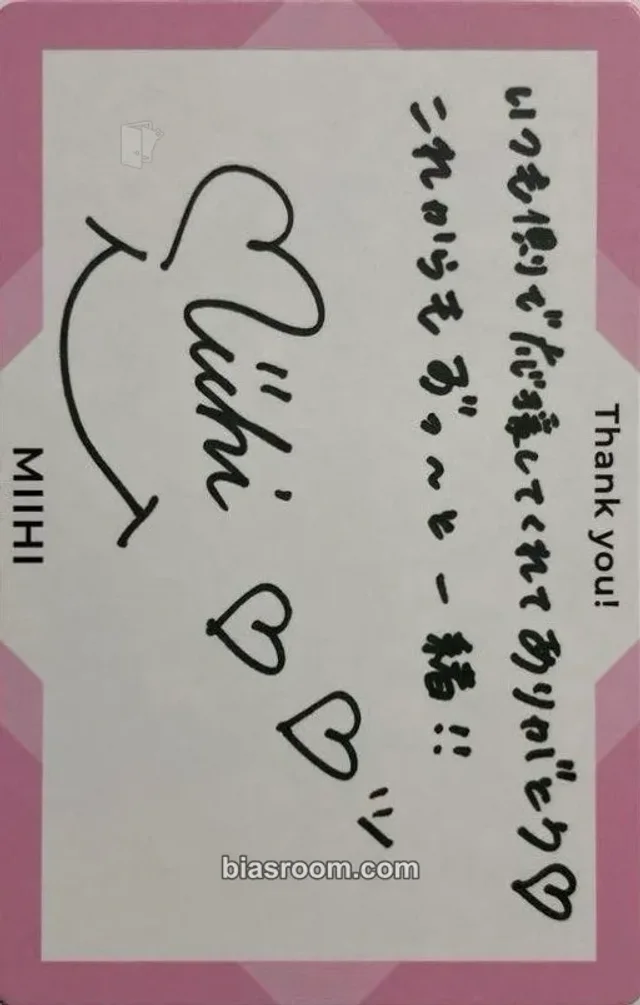 Thank you!
いつも側で応援してくれてありがとう♡
これからもずっ~と一緒!!
Miihi ♡♡
MIIHI
biasroom.com